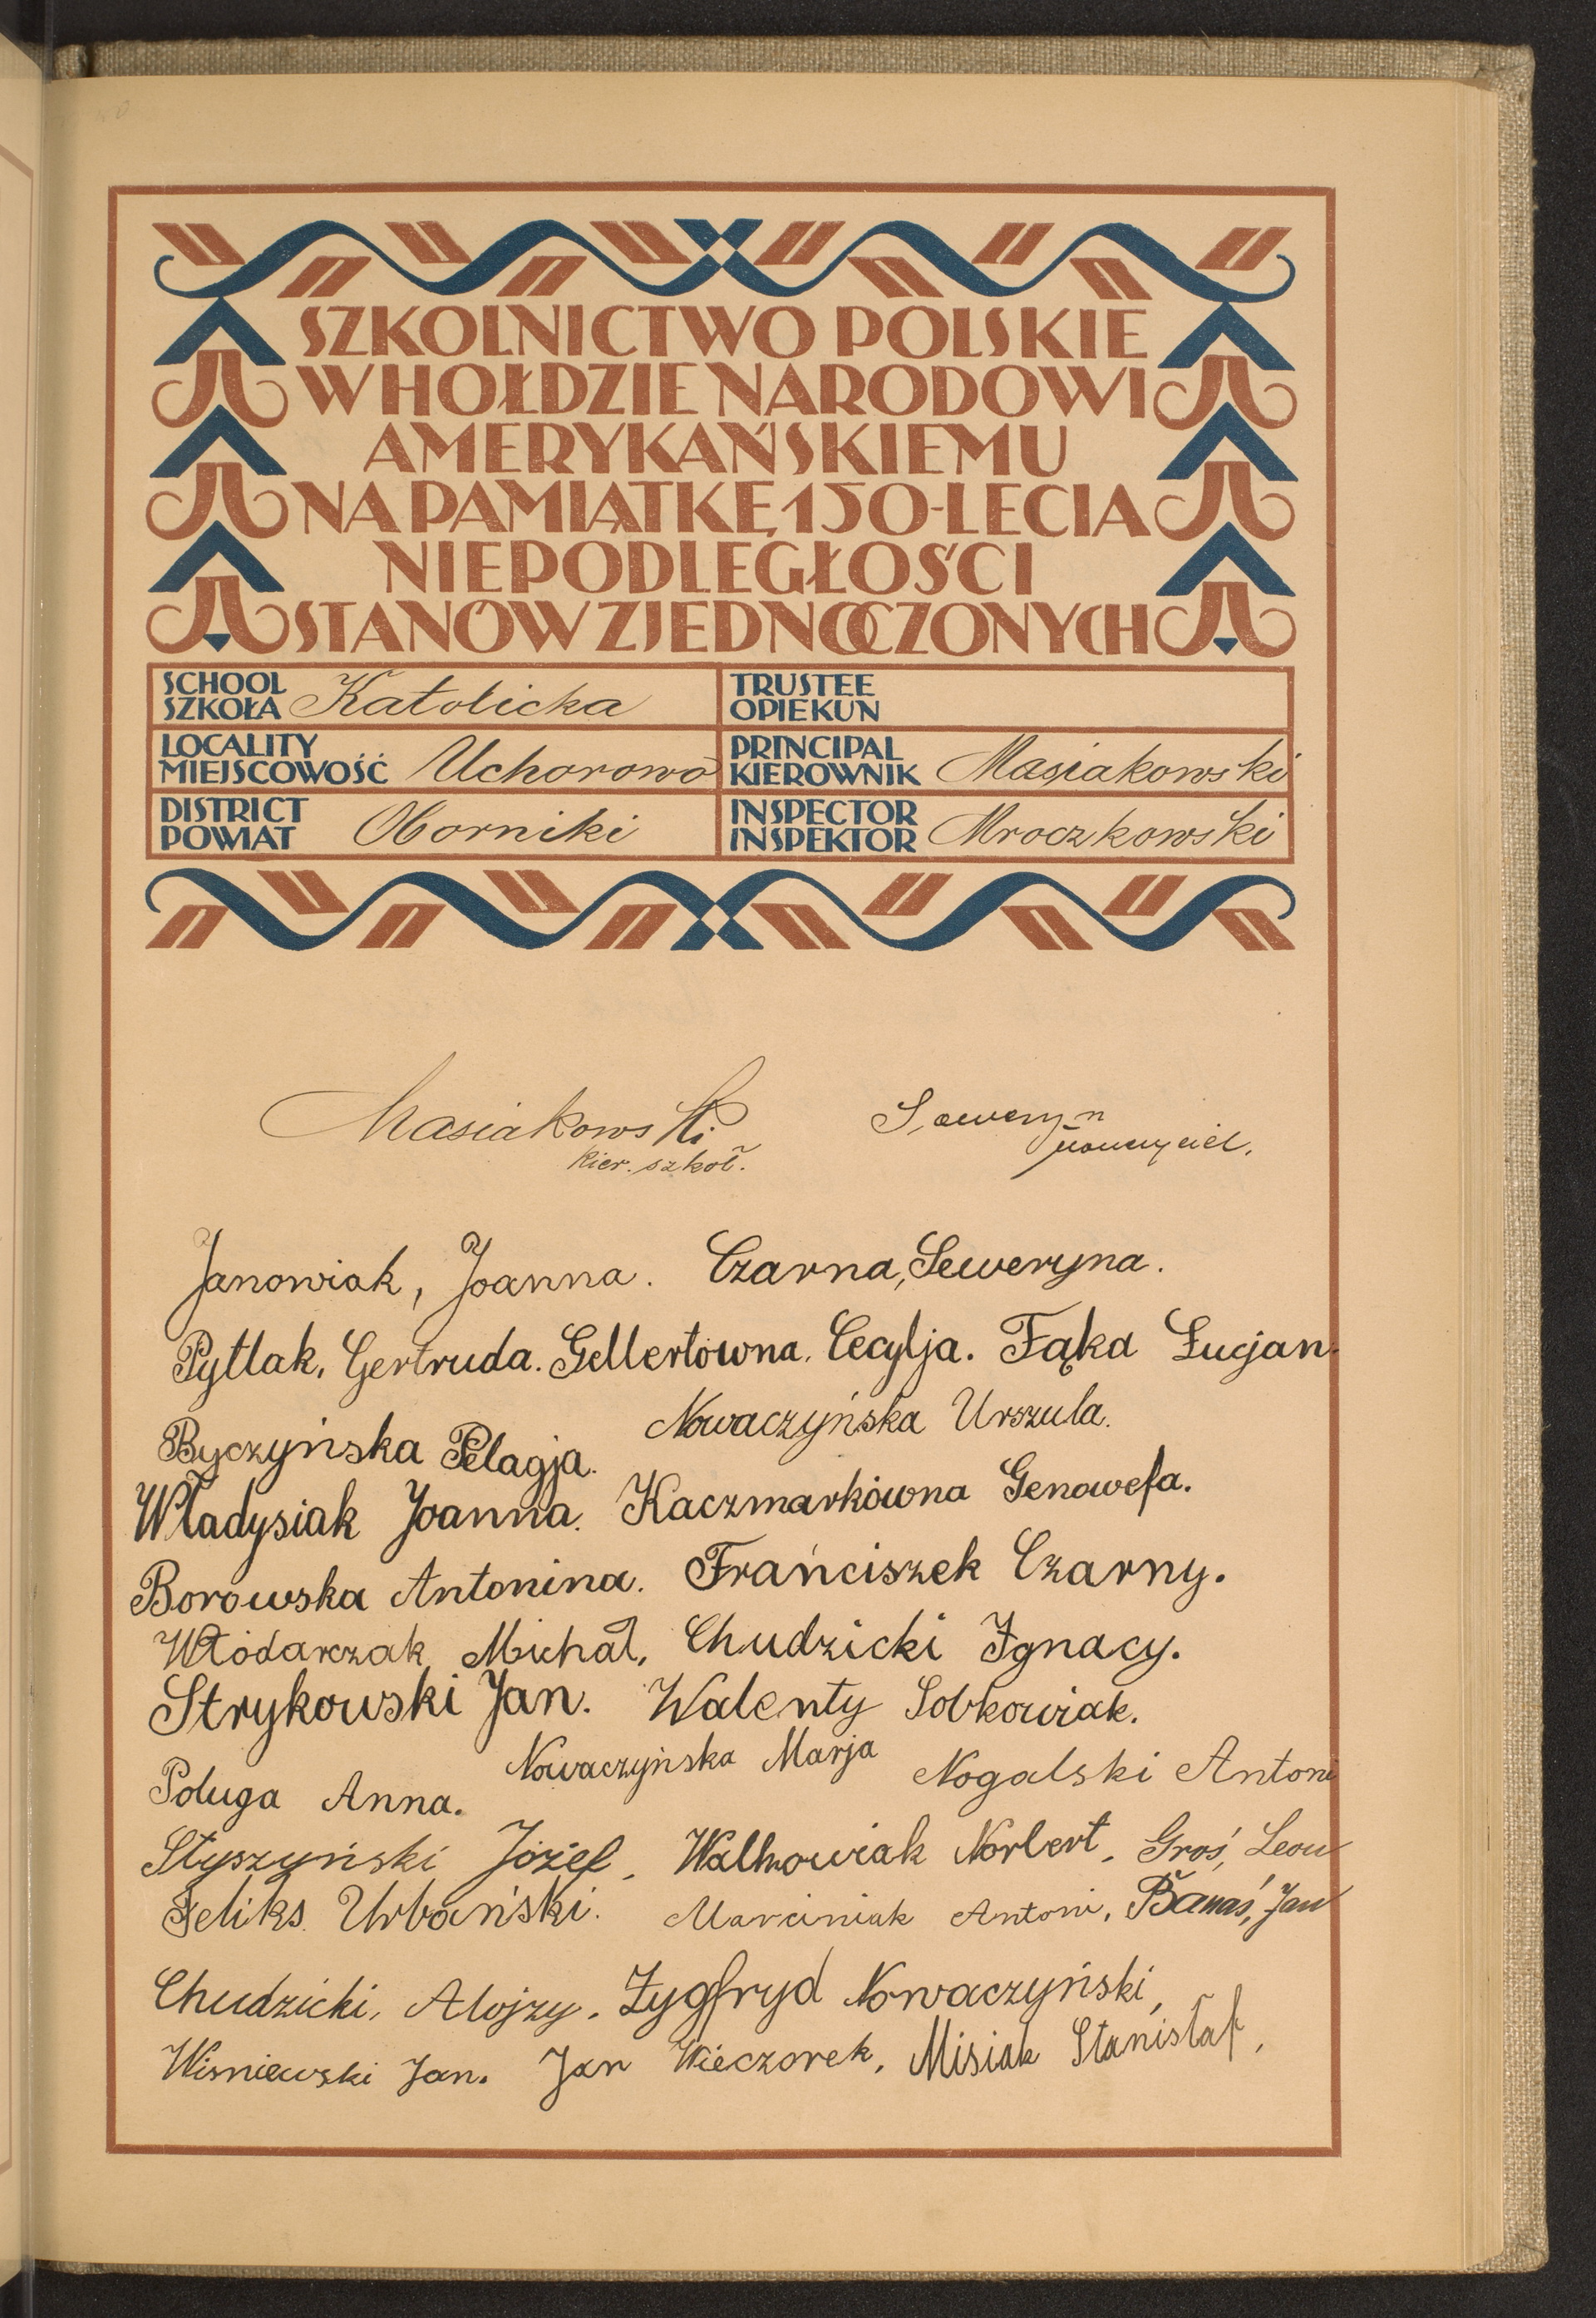 SZKOLNICTWO POLSKIE
W HOŁDZIE NARODOWI
AMERYKAŃSKIEMU
NA PAMIĄTKĘ 150-LECIA
NIEPODLEGŁOŚCI
STANÓW ZJEDNOCZONYCH
SCHOOL
SZKOŁA Katolicka
TRUSTEE
OPIEKUN
LOCALITY
MIEJSCOWOŚĆ Uchorowo
PRINCIPAL
KIEROWNIK Masiakowski
DISTRICT
POWIAT Oborniki
INSPECTOR
INSPEKTOR Mroczkowski
Masiakowski
kier. szkoł.
nauczyciel.
Janowiak, Joanna. Czarna, Seweryna.
Pytlak, Gertruda. Gellertówna, Cecylja. Fąka Łucjan.
Byczyńska Pelagja. Nowaczyńska Urszula.
Władysiak Joanna. Kaczmarkówna Genowefa.
Borowska Antonina. Frańciszek Czarny.
Włódarczak Michał, Chudzicki Ignacy.
Strykowski Jan. Walenty Sobkowiak.
Poluga Anna. Nowaczyńska Marja Nogalski Antoni
Styszyński Józef, Walkowiak Norbert, Groś, Leon
Feliks Urbański. Marciniak Antoni, Banaś, Jan
Chudzicki, Alojzy. Zygfryd Nowaczyński,
Wisniewski Jan. Jan Wieczorek, Misiak Stanisłaf,